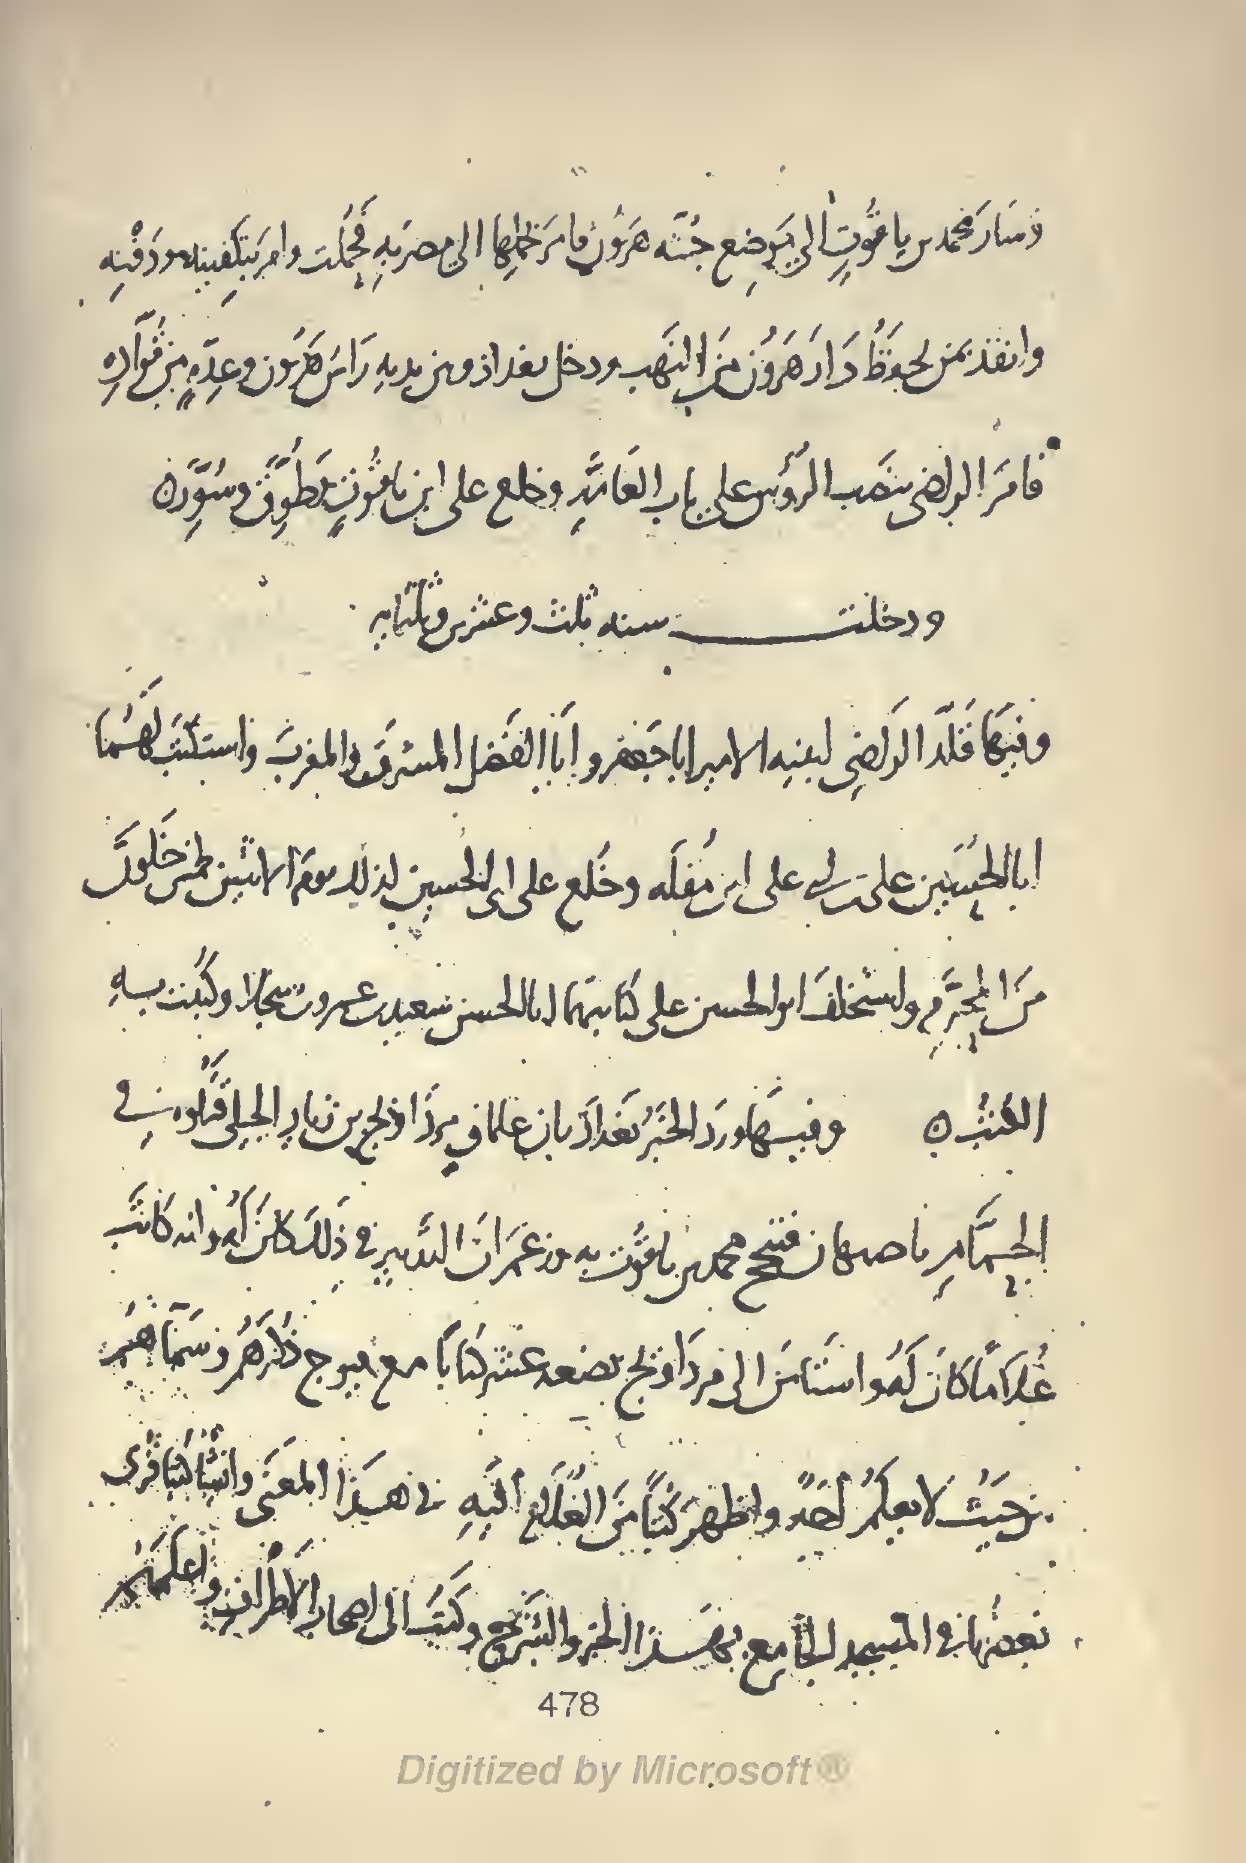 وسار محمد بن ياقوت الى موضع جثه هرون فامر بحملها الى مضربه فحملت وامر بتكفينه ودفنه
وانفذ من يحفظ دار هرون من النهب ودخل بغداذ وبين يديه راس هرون وعده من قواده
فامر الراضي بنصب الرؤس على باب العامه وخلع على ابن ياقوت وطوق وسور
ودخلت سنه ثلث وعشرين وثلثمايه
وفيها قلد الراضي لبنيه الامير ابا جعفر وابا الفضل المشرق والمغرب واستكتب لهما
ابا الحسين على بن ابي على ابن مقله وخلع على ابي الحسين لذلك يوم الاثنين لخمس خلون
من المحرم واستخلف ابو الحسين على كتابتهما ابا الحسن سعيد بن عمرو بن سنجلا وكتبت به
الكتب وفيها ورد الخبر بغداذ بان غلمان مرداويج بن زيار الجيلي قتلوه في
الحمام باصبهان فتبجح محمد بن ياقوت به وزعم ان التدبير في ذلك كان له وانه كاتب
غلاما كان له واستامن الى مرداويج بضعه عشر كتابا مع فيوج ذكرهم وسماهم
من حيث لا يعلم احد واظهر كتبا من الغلام اليه في هذا المعنى وانشا كتبا قرى
بعضها في المسجد الجامع بهذا الخبر والشرح وكتب الى اصحاب الاطراف واعلمهم
478
Digitized by Microsoft®